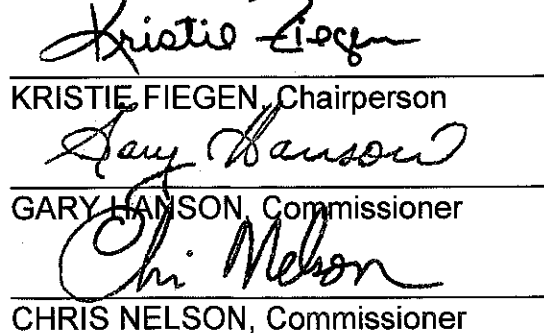 Kristie Fiegen
KRISTIE FIEGEN, Chairperson
Gary Hanson
GARY HANSON, Commissioner
Chris Nelson
CHRIS NELSON, Commissioner